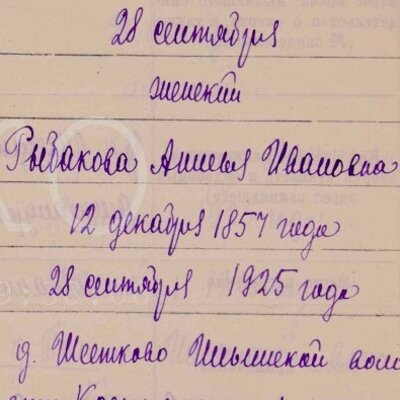 28 сентября
женский
Рыбакова Анисья Ивановна
12 декабря 1857 года
28 сентября 1925 года
д. Шестково